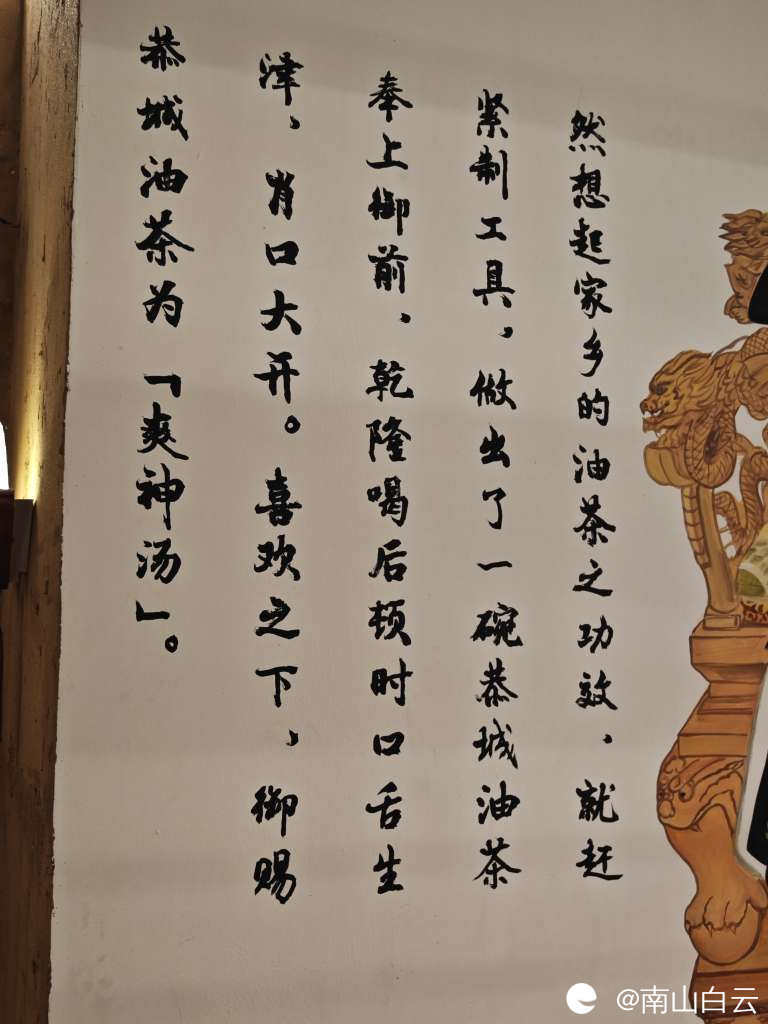 然想起家乡的油茶之功效、就赶
紧制工具，做出了一碗恭城油茶
奉上御前、乾隆喝后顿时口舌生
津、胃口大开。喜欢之下、御赐
恭城油茶为「爽神汤」。
@南山白云